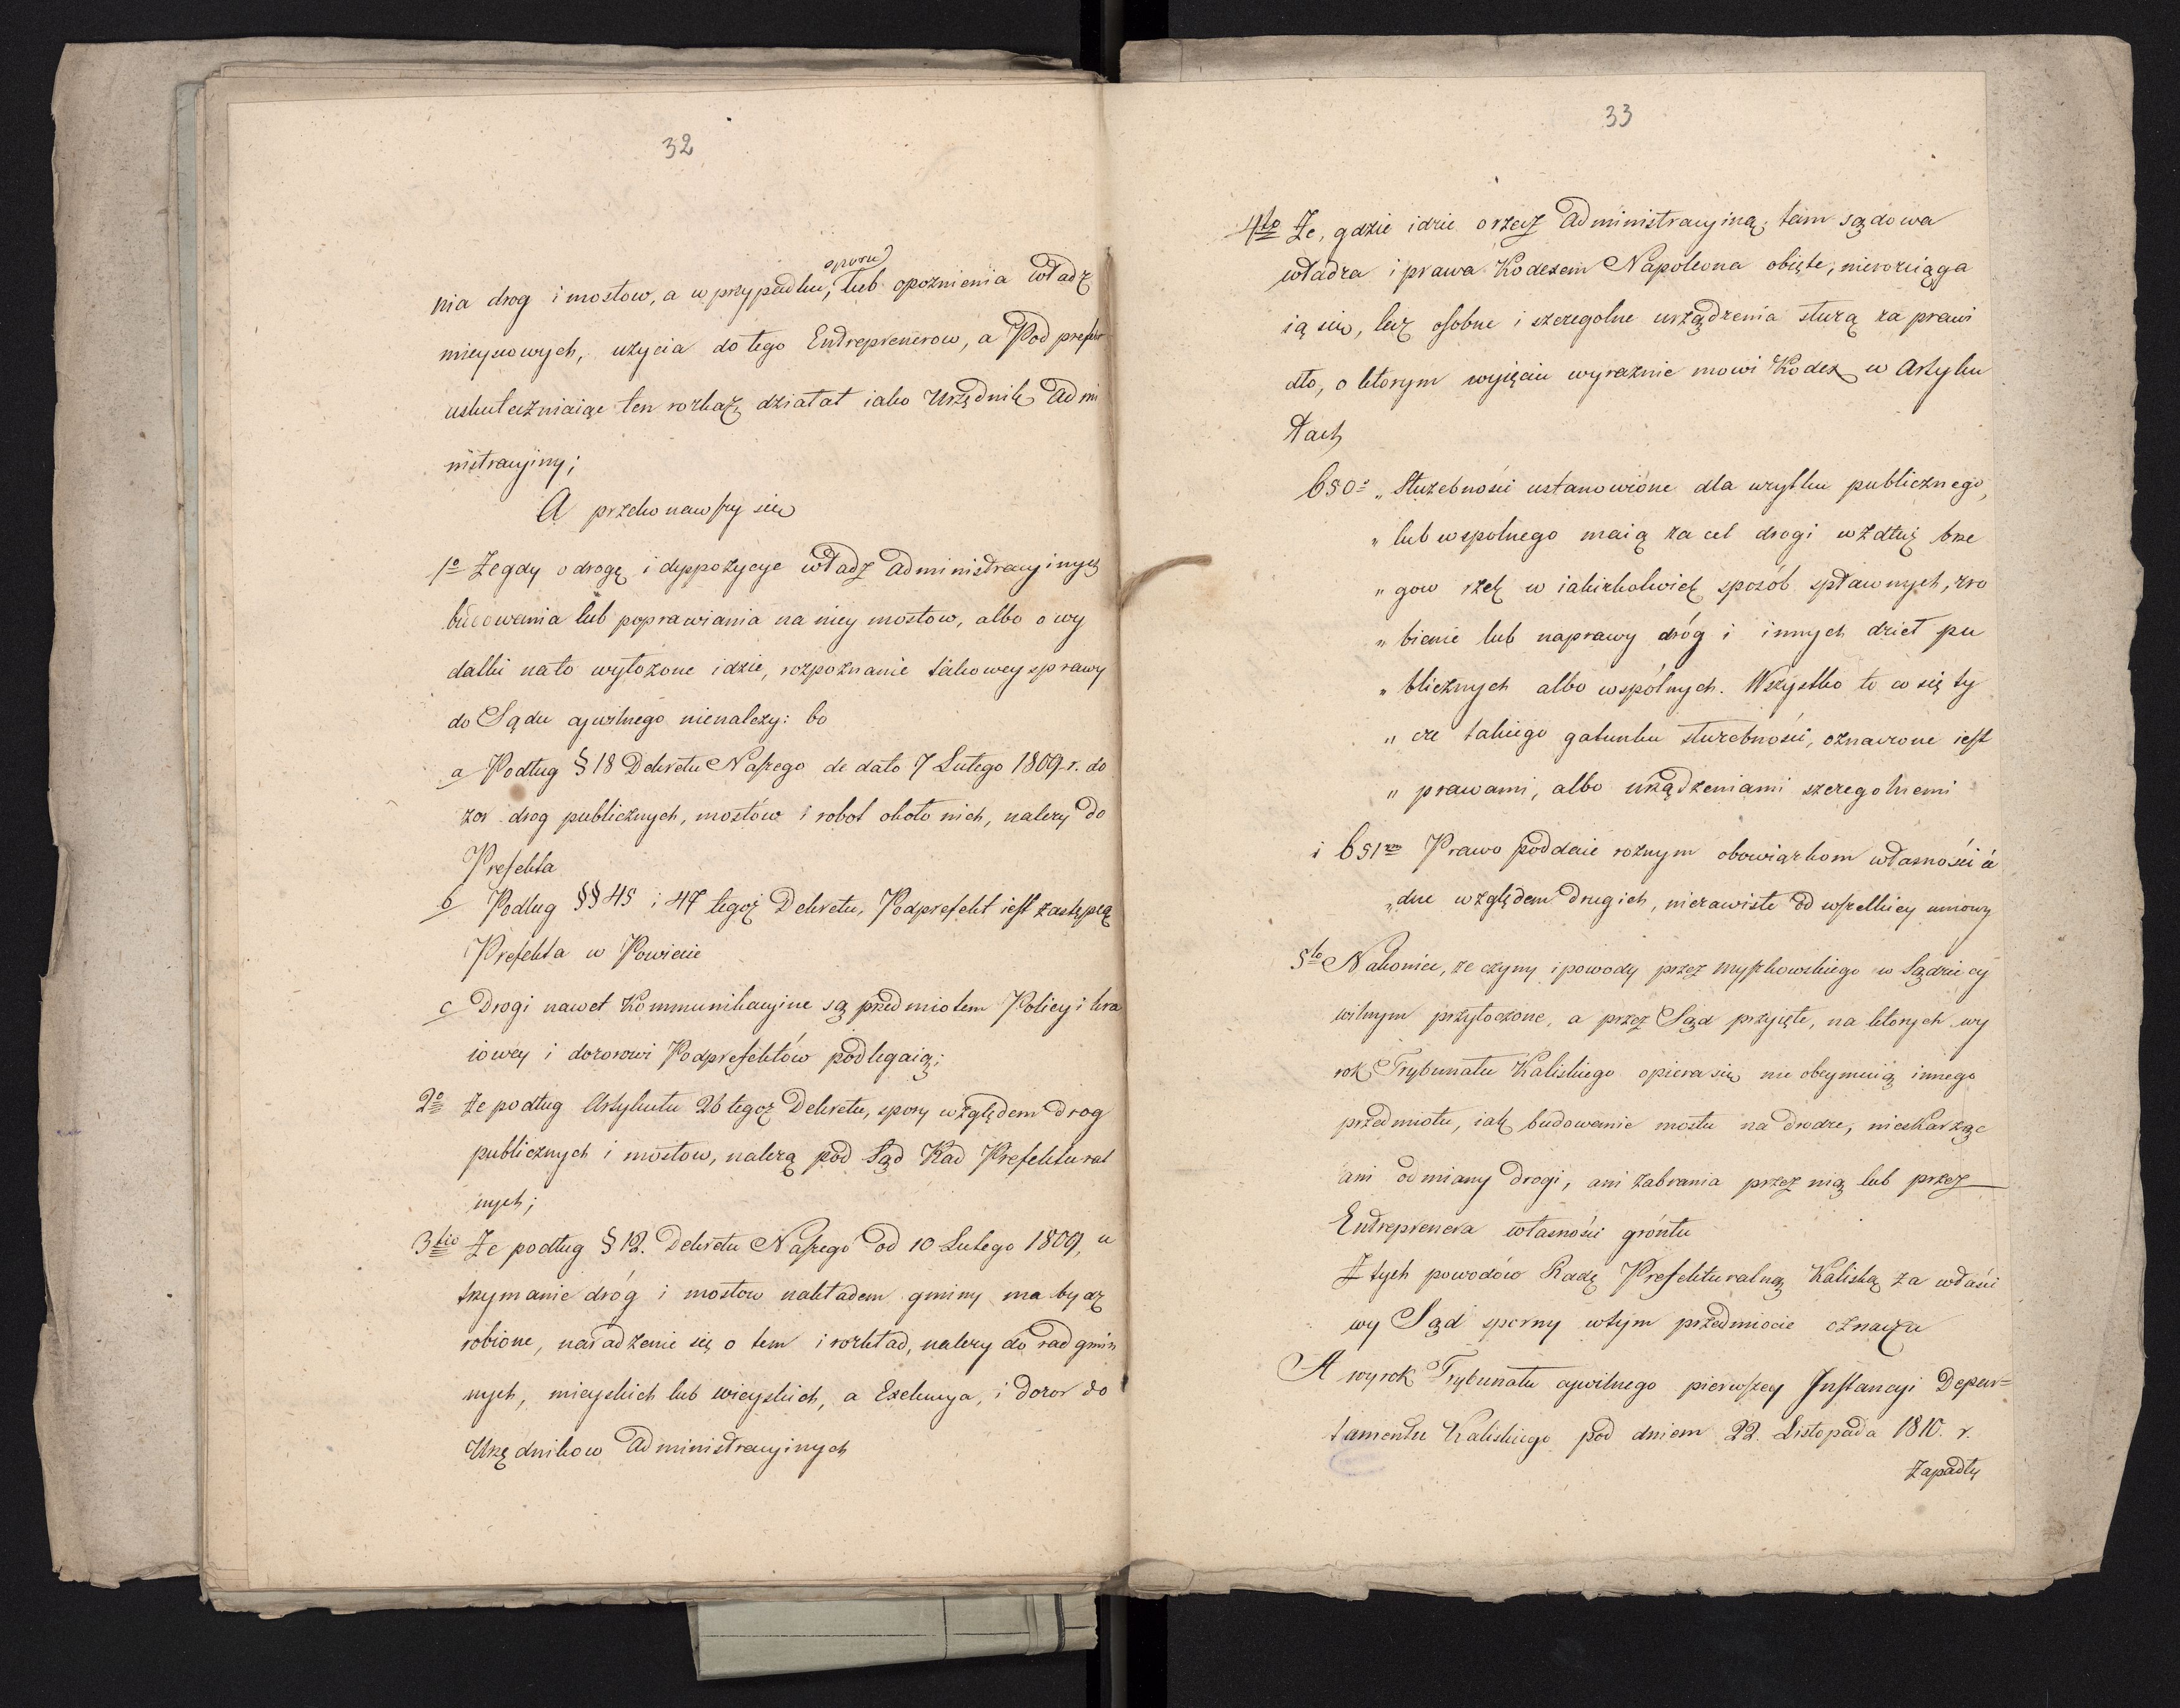 32
nia drog i mostow, a w przypadku, oporu lub opoznienia Władz
mieyscowych, uzycia do tego Entreprenerow, a Pod prefekt
uskuteczniaiąc ten rozkaz, działał iako Urzędnik Admi
nistracyiny;
A przekonawszy się
1º Że gdy o drogę i dyspozycye władz administracyinych
budowania lub poprawiania na niey mostow, albo o wy
datki na to wyłożone idzie, rozpoznanie takowey sprawy
do Sądu cywilnego nienalezy: bo
a Podług § 18 Dekretu Naszego de dato 7 Lutego 1809 r. do
zor drog publicznych, mostów i robot około nich, nalezy do
Prefekta
b Podług §§ 45 i 47 tegoż Dekretu, Podprefekt iest zastępcą
Prefekta w Powiecie
c Drogi nawet Kommunikacyine są przedmiotem Policyi kra
iowey i dozorowi Podprefektów podlegaią;
2º Że podług Artykułu 26 tegoż Dekretu, spory względem drog
publicznych i mostow, należą pod Sąd Rad Prefektural
nych;
3tio Że podług § 12. Dekretu Naszego od 10 Lutego 1809, u
trzymanie dróg i mostow nakładem gminy ma bydz
robione, naradzenie się o tem i rozkład, nalezy do rad gmin
nych, mieyskich lub wieyskich, a Exekucya, i dozor do
Urzędnikow Administracyinych
33
4to Że, gdzie idzie o rzecz administracyiną, tam sądowa
władza i prawa Kodexem Napoleona obięte, nierozciąga
ią się, lecz osobne i szczegolne urządzenia służą za prawi
dło, o ktorym wyięciu wyraznie mowi Kodex w Artyku
łach
650: „ Służebności ustanowione dla uzytku publicznego,
„ lub wspolnego maią za cel drogi wzdłuż brze
„ gow rzek w iakizkolwiek sposób spławnych, zro
„ bienie lub naprawy dróg i innych dzieł pu
„ blicznych albo wspólnych. Wszystko to co się ty
„ cze takiego gatunku służebności, oznaczone iest
„ prawami, albo urządzeniami szczegolnemi
i 651m Prawo poddaie roznym obowiązkom własności ie
„ dne względem drugich, niezawiśle od wszelkiey umowy
5to Nakoniec, ze czyny i powody przez Myszkowskiego w Sądzie cy
wilnym przytoczone, a przez Sąd przyięte, na ktorych wy
rok Trybunału Kaliskiego opiera się nie obeymuią innego
przedmiotu, iak budowanie mostu na drodze, nieskarżąc
ani odmiany drogi, ani zabrania przez nią lub przez
Entreprenera własności gróntu
Z tych powodów Radę Prefekturalną Kaliską za właści
wy Sąd sporny w tym przedmiocie oznacza
A wyrok Trybunału cywilnego pierwszey Instancyi Depar=
tamentu Kaliskiego pod dniem 22. Listopada 1810. r.
zapadły